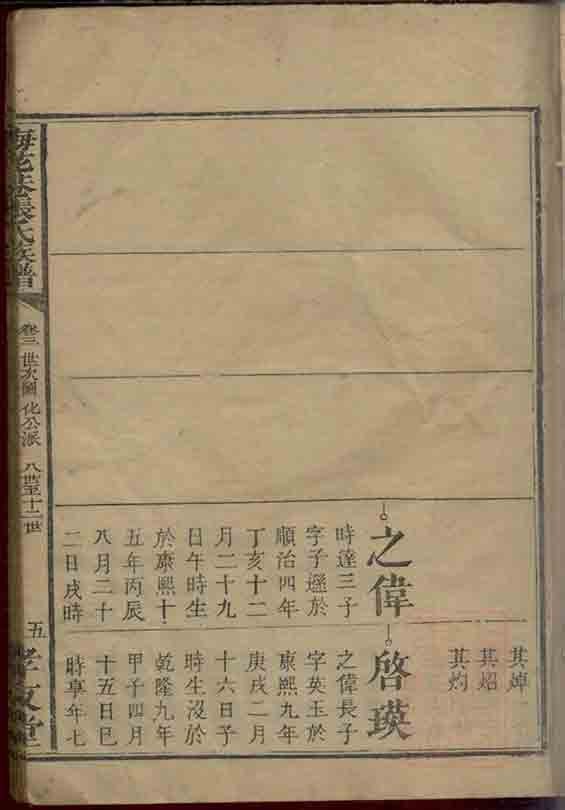 之偉
時達三子
字子遜於
順治四年
丁亥十二
月二十九
日午時生
於康熙十
五年丙辰
八月二十
二日戌時
其焯
其炤
其灼
啓瑛
之偉長子
字英玉於
康熙九年
庚戌二月
十六日子
時生沒於
乾隆九年
甲子四月
十五日巳
時享年七
張氏族譜
卷三 世次圖 化公派 八世至十二世
五
孝友堂